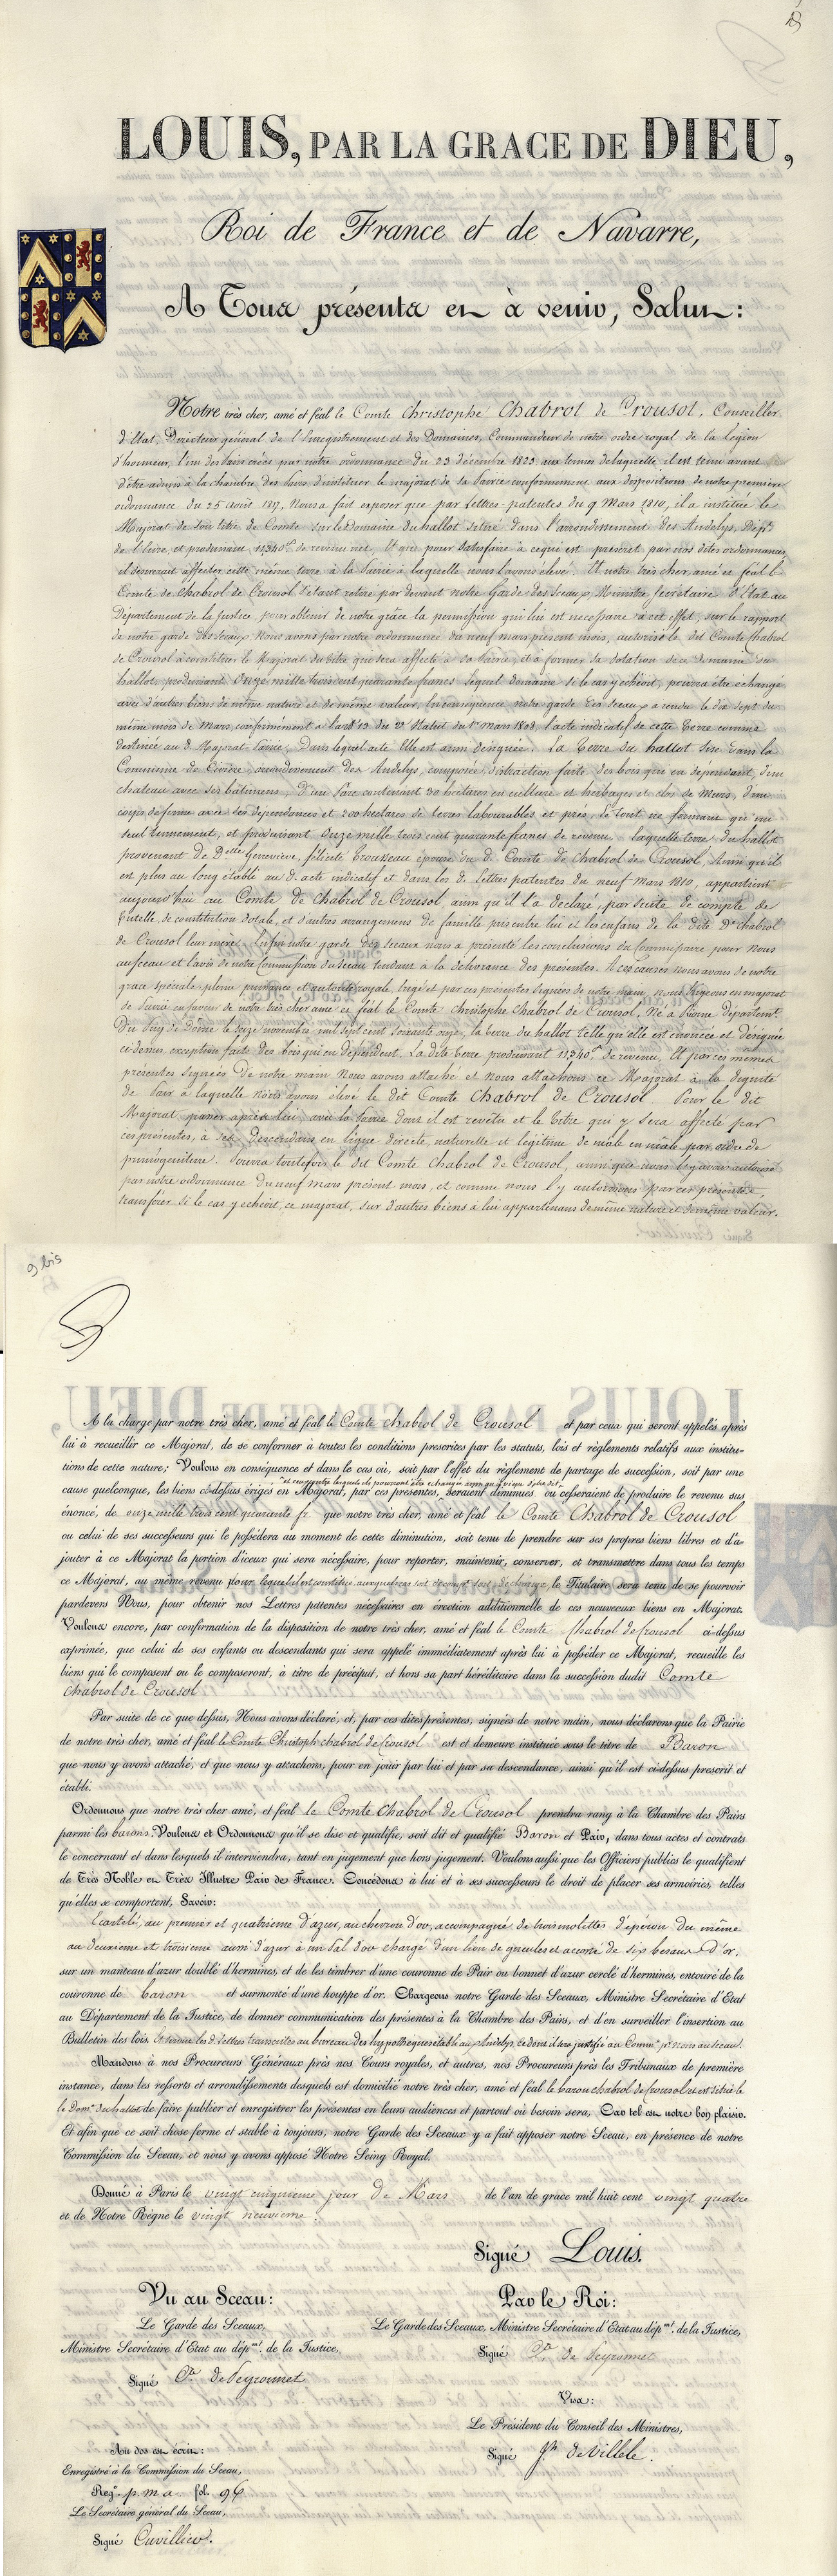 LOUIS, PAR LA GRACE DE DIEU,
Roi de France et de Navarre,
A Tous présents et à venir, Salut:
Notre très cher, amé et féal le Comte Christophe Chabrol de Crousol, Conseiller
d'Etat, Directeur général de l'Enregistrement et des Domaines, Commandeur de notre ordre royal de la légion
d'honneur, l'un des Pairs créés par notre ordonnance du 23 décembre 1823 aux termes de laquelle, il est tenu avant
d'être admis à la chambre des Pairs d'instituer le majorat de sa Pairie conformément aux dispositions de notre première
ordonnance du 25 août 1817, Nous a fait exposer que par Lettres patentes du 9 Mars 1810, il a institué le
Majorat de son titre de Comte sur le Domaine du hallot situé dans l'arrondissement des Andelys, Dépt.
de l'Eure, et produisant 11,340 fr. de revenu net, Et que pour satisfaire à ce qui est prescrit par nos dites ordonnances,
il désirerait affecter cette même terre à la Pairie à laquelle nous l'avons élevé. Et notre très cher, amé et féal le
Comte de Chabrol de Crousol s'étant retiré par devant notre Garde des Sceaux, Ministre Secrétaire d'Etat au
Département de la Justice, pour obtenir de notre grâce la permission qui lui est nécessaire à cet effet, sur le rapport
de notre garde des Sceaux Nous avons par notre ordonnance du neuf mars présent mois, autorisé le dit Comte Chabrol
de Crousol à constituer le Majorat du titre qui sera affecté à sa Pairie, et à former sa dotation de ce domaine du
hallot, produisant Onze mille trois cent quarante francs lequel domaine si le cas y échéoit, pourra être échangé
avec d'autres biens de même nature et de même valeur, En conséquence notre garde des Sceaux a rendu le dix sept du
même mois de Mars, conformément à l'art. 13 du 2d Statut du 1er mars 1808, l'acte indicatif de cette terre comme
destinée au d. Majorat Pairie, Dans lequel acte Elle est ainsi désignée. La terre du hallot sise dans la
Commune de Civière, arrondissement des Andelys, composée, distraction faite des bois qui en dépendent, d'un
chateau avec ses bâtimens, d'un Parc contenant 30 hectares en culture et herbages et clos de Murs, d'un
corps de ferme avec ses dépendances et 200 hectares de terres labourables et prés, le tout ne formant qu'un
seul tennement, et produisant Onze mille trois cent quarante francs de revenu. laquelle terre du hallot
provenant de Delle Geneviève, félicité Trousseau épouse du d. Comte de Chabrol de Crousol, Ainsi qu'il
est plus au long établi au d. acte indicatif et dans les d. lettres patentes du neuf Mars 1810, appartient
aujourd'hui au Comte de Chabrol de Crousol ainsi qu'il l'a déclaré, par suite de compte de
tutelle, de constitution dotale, et d'autres arrangemens de famille pris entre lui et les enfans de la dite De Chabrol
de Crousol leur mère. Enfin notre garde des sceaux nous a présenté les conclusions du Commissaire pour Nous
au sceau et l'avis de notre Commission du Sceau tendant à la délivrance des présentes. A ces causes nous avons de notre
grace spéciale pleine puissance et autorité royale, érigé et par ces présentes signées de notre main, nous érigeons en majorat
de Pairie en faveur de notre très cher amé et féal le Comte Christophe Chabrol de Crousol, Né à Riom départemt.
du Puy de Dôme le seize novembre mil sept cent soixante onze, la terre du hallot telle qu'elle est énoncée et désignée
ci dessus, exception faite des bois qui en dépendent. La dite terre produisant 11,340 fr. de revenu, Et par ces mêmes
présentes signées De notre main Nous avons attaché et Nous attachons ce Majorat à la dignité
de Pair à laquelle nous avons élevé le dit Comte Chabrol de Crousol. Pour le dit
Majorat passer après lui avec la Pairie dont il est revêtu et le titre qui y sera affecté par
ces présentes, à ses descendans en ligne directe naturelle et légitime de mâle en mâle par ordre de
primogéniture. Pourra toutefois le dit Comte Chabrol de Crousol, ainsi que nous l'y avons autorisé
par notre ordonnance du neuf mars présent mois, et comme nous l'y autorisons par ces présentes,
transférer si le cas y échéoit, ce majorat, sur d'autres biens à lui appartenans de même nature et de même valeur.
9 bis
A la charge par notre très cher, amé et féal le Comte Chabrol de Crousol et par ceux qui seront appelés après
lui à recueillir ce Majorat, de se conformer à toutes les conditions prescrites par les statuts, lois et règlements relatifs aux institu-
tions de cette nature; Voulons en conséquence et dans le cas où, soit par l'effet du règlement de partage de succession, soit par une
cause quelconque, les biens ci-dessus érigés en Majorat, par ces présentes, seraient diminués ou cesseraient de produire le revenu sus
énoncé, de onze mille trois cent quarante fr. que notre très cher, amé et féal le Comte Chabrol de Crousol
ou celui de ses successeurs qui le possédera au moment de cette diminution, soit tenu de prendre sur ses propres biens libres et d'a-
jouter à ce Majorat la portion d'iceux qui sera nécessaire, pour reporter, maintenir, conserver, et transmettre dans tous les temps
ce Majorat, au même revenu pour lequel il est constitué, le Titulaire sera tenu de se pourvoir
pardevers Nous, pour obtenir nos Lettres patentes nécessaires en érection additionnelle de ces nouveaux biens en Majorat.
Voulons encore, par confirmation de la disposition de notre très cher, amé et féal le Comte Chabrol de Crousol ci-dessus
exprimée, que celui de ses enfants ou descendants qui sera appelé immédiatement après lui à posséder ce Majorat, recueille les
biens qui le composent ou le composeront, à titre de préciput, et hors sa part héréditaire dans la succession dudit Comte
Chabrol de Crousol
Par suite de ce que dessus, Nous avons déclaré, et, par ces dites présentes, signées de notre main, nous déclarons que la Pairie
de notre très cher, amé et féal le Comte Christoph chabrol de Crousol est et demeure instituée sous le titre de Baron
que nous y avons attaché, et que nous y attachons, pour en jouir par lui et par sa descendance, ainsi qu'il est ci-dessus prescrit et
établi.
Ordonnons que notre très cher amé, et féal le Comte Chabrol de Crousol prendra rang à la Chambre des Pairs
parmi les barons. Voulons et Ordonnons qu'il se dise et qualifie, soit dit et qualifié Baron et Pair, dans tous actes et contrats
le concernant et dans lesquels il interviendra, tant en jugement que hors jugement. Voulons aussi que les Officiers publics le qualifient
de Très Noble et Très Illustre Pair de France. Concédons à lui et à ses successeurs le droit de placer ses armoiries, telles
qu'elles se comportent, Savoir:
Ecartelé, au premier et quatrième d'azur, au chevron d'or, accompagné de trois molettes d'éperon du même
au deuxième et troisième aussi d'azur à un Pal d'or chargé d'un lion de gueules et accosté de six besans d'or,
sur un manteau d'azur doublé d'hermines, et de les timbrer d'une couronne de Pair ou bonnet d'azur cerclé d'hermines, entouré de la
couronne de baron et surmonté d'une houppe d'or. Chargeons notre Garde des Sceaux, Ministre Secrétaire d'Etat
au Département de la Justice, de donner communication des présentes à la Chambre des Pairs, et d'en surveiller l'insertion au
Bulletin des lois. Et seront les d. lettres transcrites au bureau des hypothèques établi aux Andelys, ce dont il sera justifié au Commre pr. nous au sceau.
Mandons à nos Procureurs Généraux près nos Cours royales, et autres, nos Procureurs près les Tribunaux de première
instance, dans les ressorts et arrondissements desquels est domicilié notre très cher, amé et féal le baron chabrol de Crousol et est situé le
le Domne du hallot de faire publier et enregistrer les présentes en leurs audiences et partout où besoin sera, Car tel est notre bon plaisir.
Et afin que ce soit chose ferme et stable à toujours, notre Garde des Sceaux y a fait apposer notre Sceau, en présence de notre
Commission du Sceau, et nous y avons apposé Notre Seing Royal.
Donné à Paris le vingt cinquième jour de Mars de l'an de grace mil huit cent vingt quatre
et de Notre Règne le vingt neuvième.
Signé Louis.
Vu au Sceau:
Le Garde des Sceaux,
Ministre Secrétaire d'Etat au dépmt. de la Justice,
Signé Cte de Peyronnet
Par le Roi:
Le Garde des Sceaux, Ministre Secrétaire d'Etat au dépmt. de la Justice,
Signé Cte de Peyronnet
Visa:
Le Président du Conseil des Ministres,
Signé Jh de Villèle.
Au dos est écrit:
Enregistré à la Commission du Sceau,
Regre p. m a fol. 96
Le Secrétaire général du Sceau,
Signé Cuvillier.